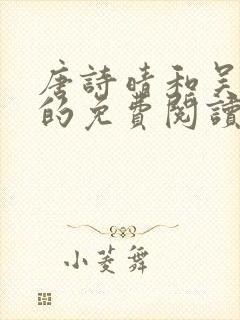 唐詩晴和吳
的免費閱讀
小菱舞